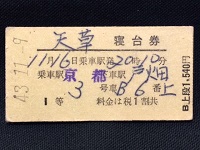 天草 寝台券
43.11.-9
11月16日乗車駅発20時10分
乗車駅 京都 戸畑
3号車 6 上
1等 料金は税1割共
B.上段1,540円